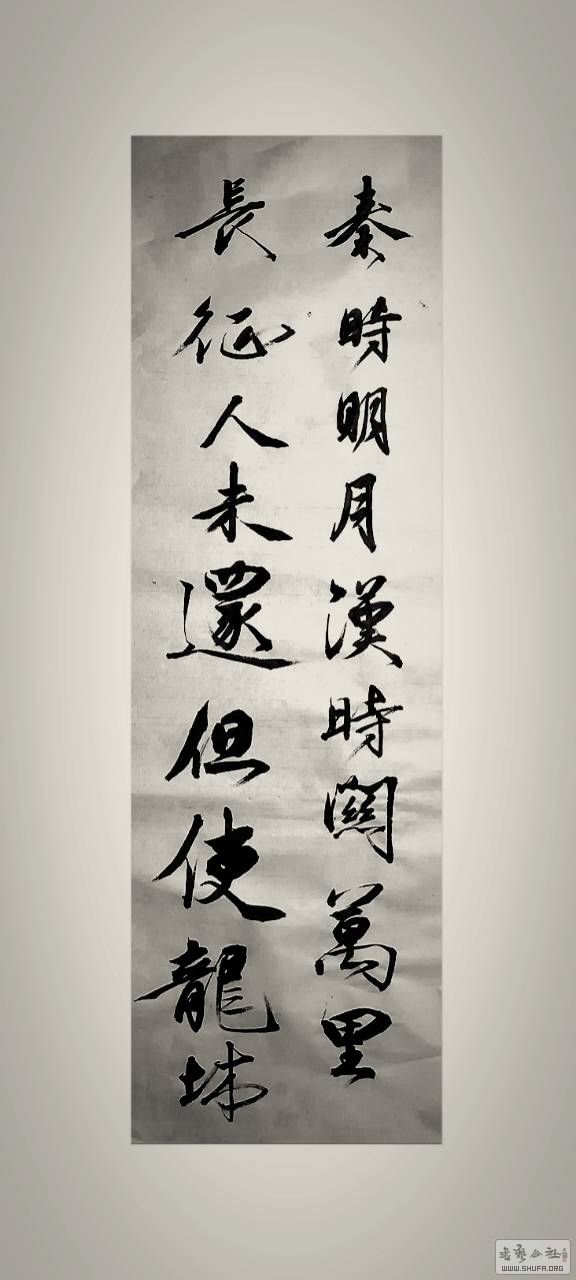 秦時明月漢時關萬里
長征人未還但使龍城
書藝公社
WWW.SHUFA.ORG